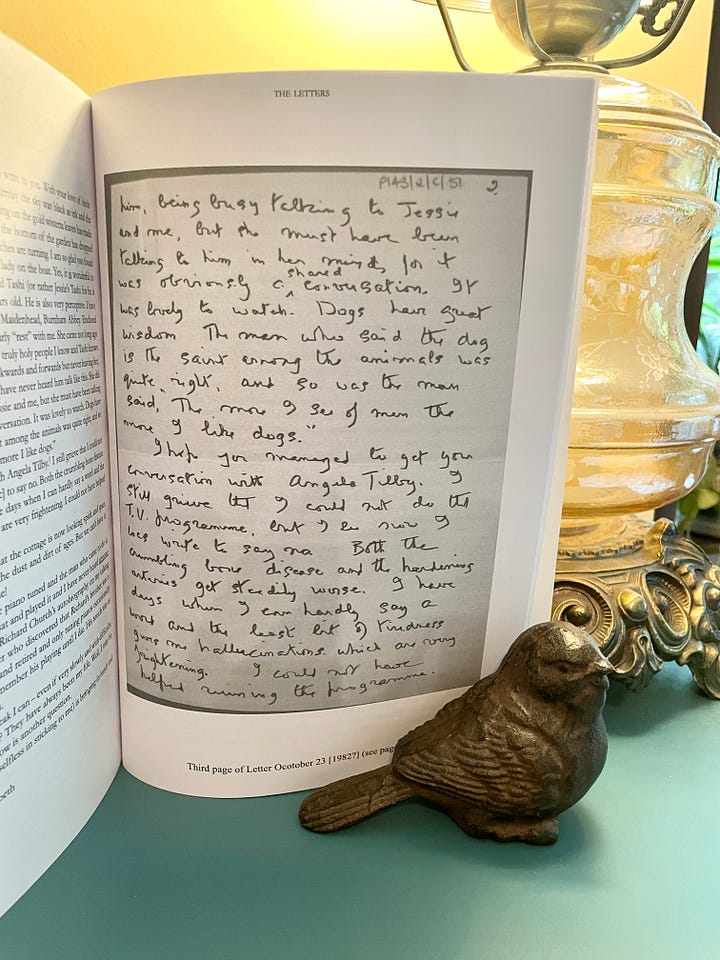 write to you. With your love of birds
the sky was black as ink and the
ing on the gold wysteria leaves has made
the bottom of the garden has dropped
ches are turning. I am so glad you found
lady on the boat. Yes, it is wonderful to
d Tashi (or rather Jessie's Tashi for he is
rs old. He is also very perceptive. I have
Maidenhead, Burnham Abbey. Enclosed
rly "rest" with me. She came not long ago
truly holy people I know and Tashi knows
ckwards and forwards but never leaving her,
have never heard him talk like this. She did
ssie and me, but she must have been talking
versation. It was lovely to watch. Dogs have
t among the animals was quite right and so
more I like dogs."
h Angela Tilby. I still grieve that I could not
] to say no. Both the crumbling bone disease
e days when I can hardly say a word and the
are very frightening. I could not have helped
at the cottage is now looking spick and span,
the dust and dirt of ages. But we can't have
e piano tuned and the man who came to do it
at and played it and I have never heard
Richard Church's autobiography
r who discovered that Richard's
and retired and only tuning pianos occasionally
member his playing until I die.
eak I can – even if very slowly and with difficulty
? They have always been my life. Well,
ow is another question.
selfless in sticking to me) is
beth
THE LETTERS
P143/2/C/51 2.
him, being busy talking to Jessie
and me, but she must have been
talking to him in her mind, for it
was obviously a shared conversation. It
was lovely to watch. Dogs have great
wisdom. The man who said the dog
is the saint among the animals was
quite right, and so was the man
said, "The more I see of men the
more I like dogs."
I hope you managed to get your
conversation with Angela Tilby. I
still grieve tht I could not do tht
T.V. programme, but I see now I
was write to say no. Both the
crumbling bone disease and the hardening
arteries get steadily worse. I have
days when I can hardly say a
word and the least bit of tiredness
gives me hallucinations which are very
frightening. I could not have
helped ruining the programme.
Third page of Letter Ocotober 23 [1982?] (see pag